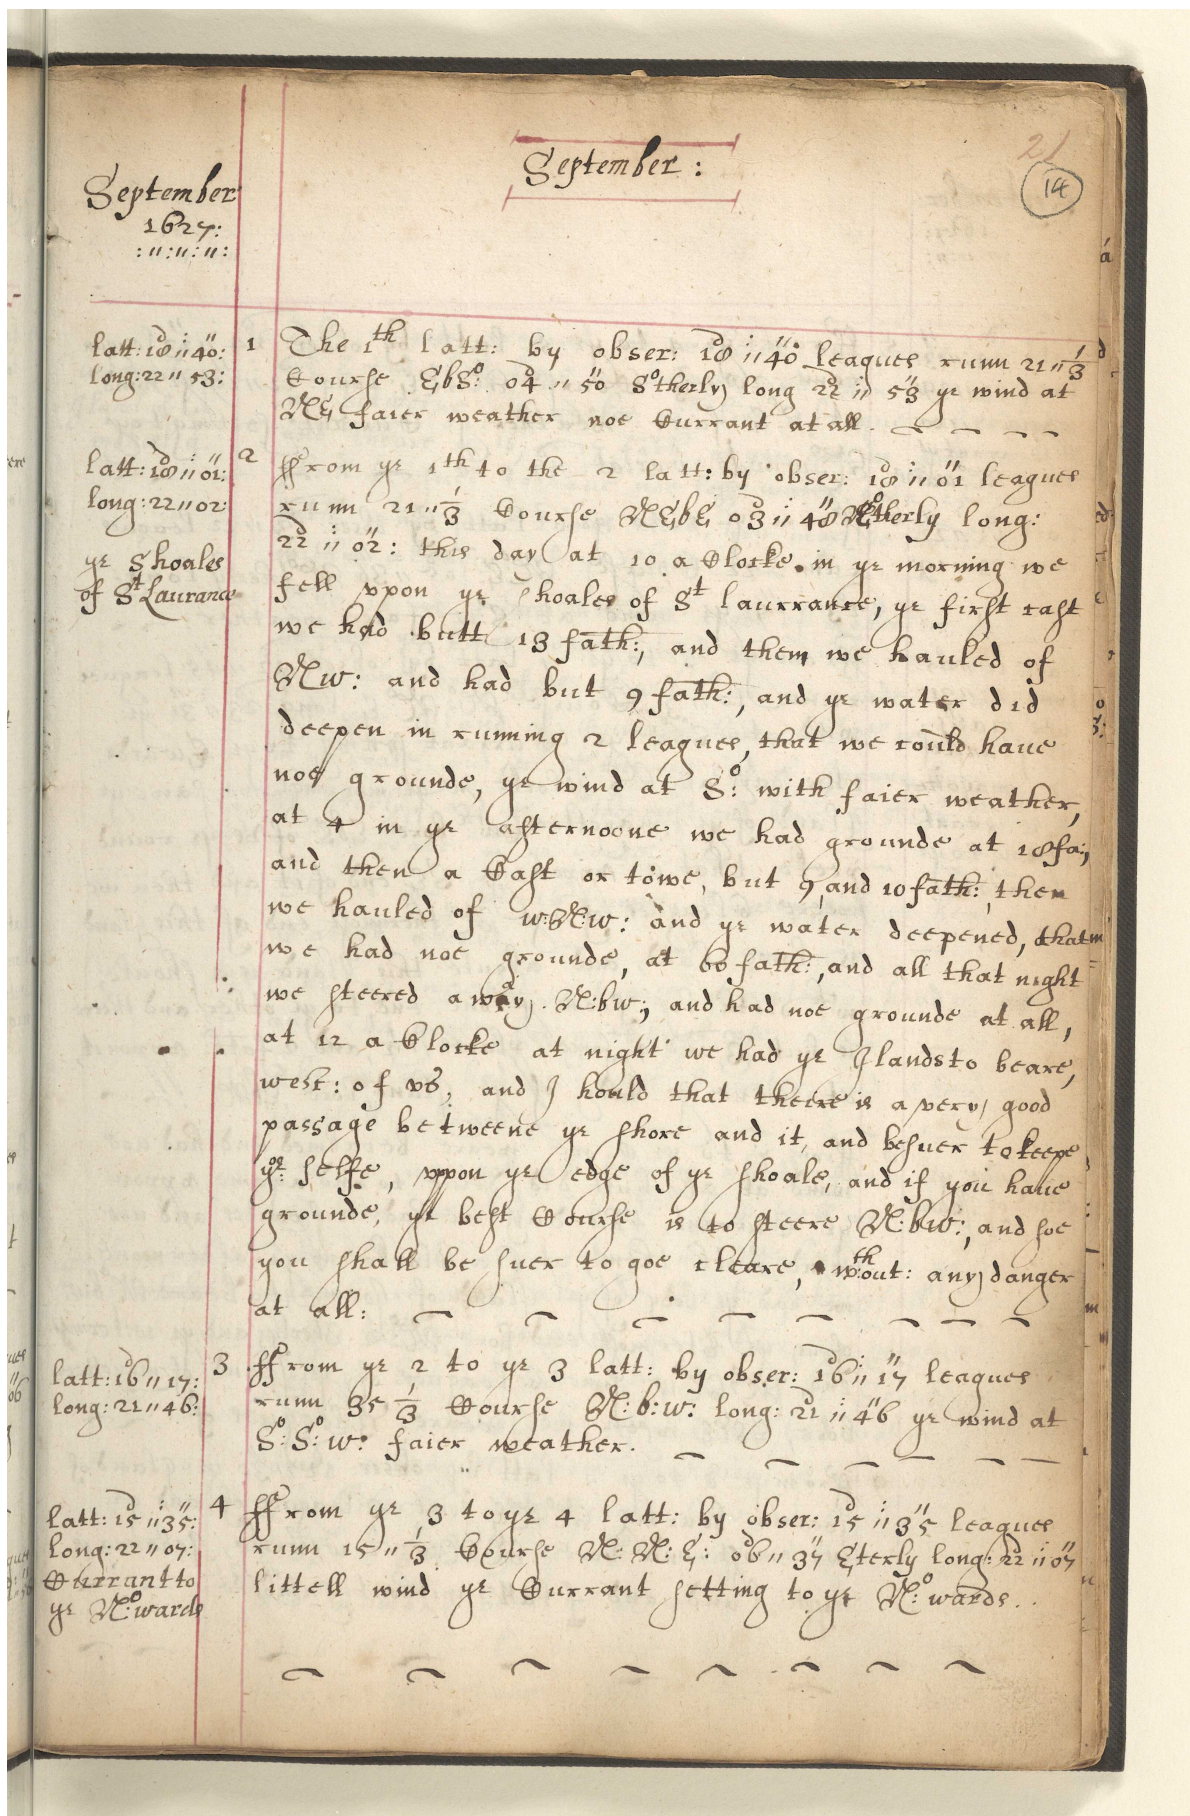 September :
21
14
September
1627:
: 11 : 11 : 11 :
latt: 18 11 40:
long: 22 11 53:
1
The 1th latt: by obser: 18 11 40 leagues runn 21 11 1/3
Course EbSo: 04 11 50 Sotherly long 22 11 53 ye wind at
NE faier weather noe Currant at all.
latt: 18 11 01:
long: 22 11 02:
ye Shoales
of St Laurance
2
ffrom ye 1th to the 2 latt: by obser: 18 11 01 leagues
runn 21 11 1/3 Course NEbE 03 11 48 Netherly long:
22 11 02: this day at 10 a Clocke in ye morning we
fell vpon ye shoales of St laurrance, ye first cast
we had butt 13 fath:, and them we hauled of
NW: and had but 9 fath:, and ye water did
deepen in running 2 leagues, that we could haue
noe grounde, ye wind at So: with faier weather,
at 4 in ye afternoone we had grounde at 18 fa:,
and then a Cast or towe, but 9, and 10 fath:, then
we hauled of w:N:w: and ye water deepened, that
we had noe grounde, at 60 fath:, and all that night
we steered away N:bw; and had noe grounde at all,
at 12 a Clocke at night we had ye Ilands to beare,
west: of vs, and I hould that theere is a very good
passage betweene ye shore and it, and besuer to keepe
yor: selfe, vppon ye edge of ye shoale, and if you haue
grounde, ye best Course is to steere N:bw:, and soe
you shall be suer to goe cleare, wthout: any danger
at all:
latt: 16 11 17:
long: 21 11 46:
3
ffrom ye 2 to ye 3 latt: by obser: 16 11 17 leagues
runn 35 1/3 Course N:b:w: long: 21 11 46 ye wind at
So: So: w: faier weather.
latt: 15 11 35:
long: 22 11 07:
Currant to
ye No:wards
4
ffrom ye 3 to ye 4 latt: by obser: 15 11 35 leagues
runn 15 11 1/3 Course N: N: E: 06 11 37 Eterly long: 22 11 07
littell wind ye Currant setting to ye No: wards.